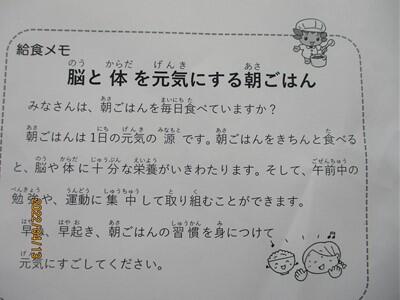 給食メモ
脳と体を元気にする朝ごはん
みなさんは、朝ごはんを毎日食べていますか？
朝ごはんは1日の元気の源です。朝ごはんをきちんと食べる
と、脳や体に十分な栄養がいきわたります。そして、午前中の
勉強や、運動に集中して取り組むことができます。
早ね、早起き、朝ごはんの習慣を身につけて
元気にすごしてください。
2022/04/13